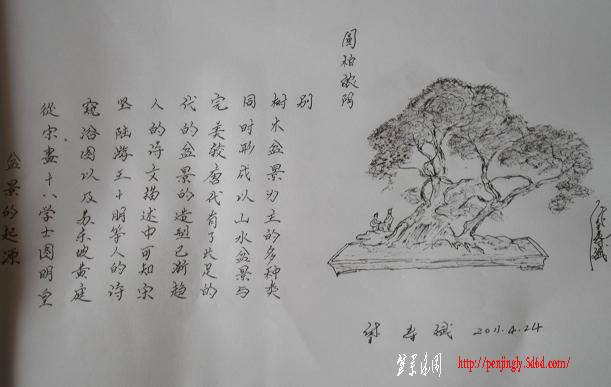 盆景的起源
從宋画十八学士图明皇
窥浴图以及苏东坡黄庭
坚陆游王十朋等人的诗
人的诗文描述中可知宋
代的盆景的造型已渐趋
完美较唐代有了长足的
同时形成以山水盆景与
树木盆景为主的多种类
别
圆柏
寿斌 2011.4.24
盆景乐园 http://penjingly.5d6d.com/